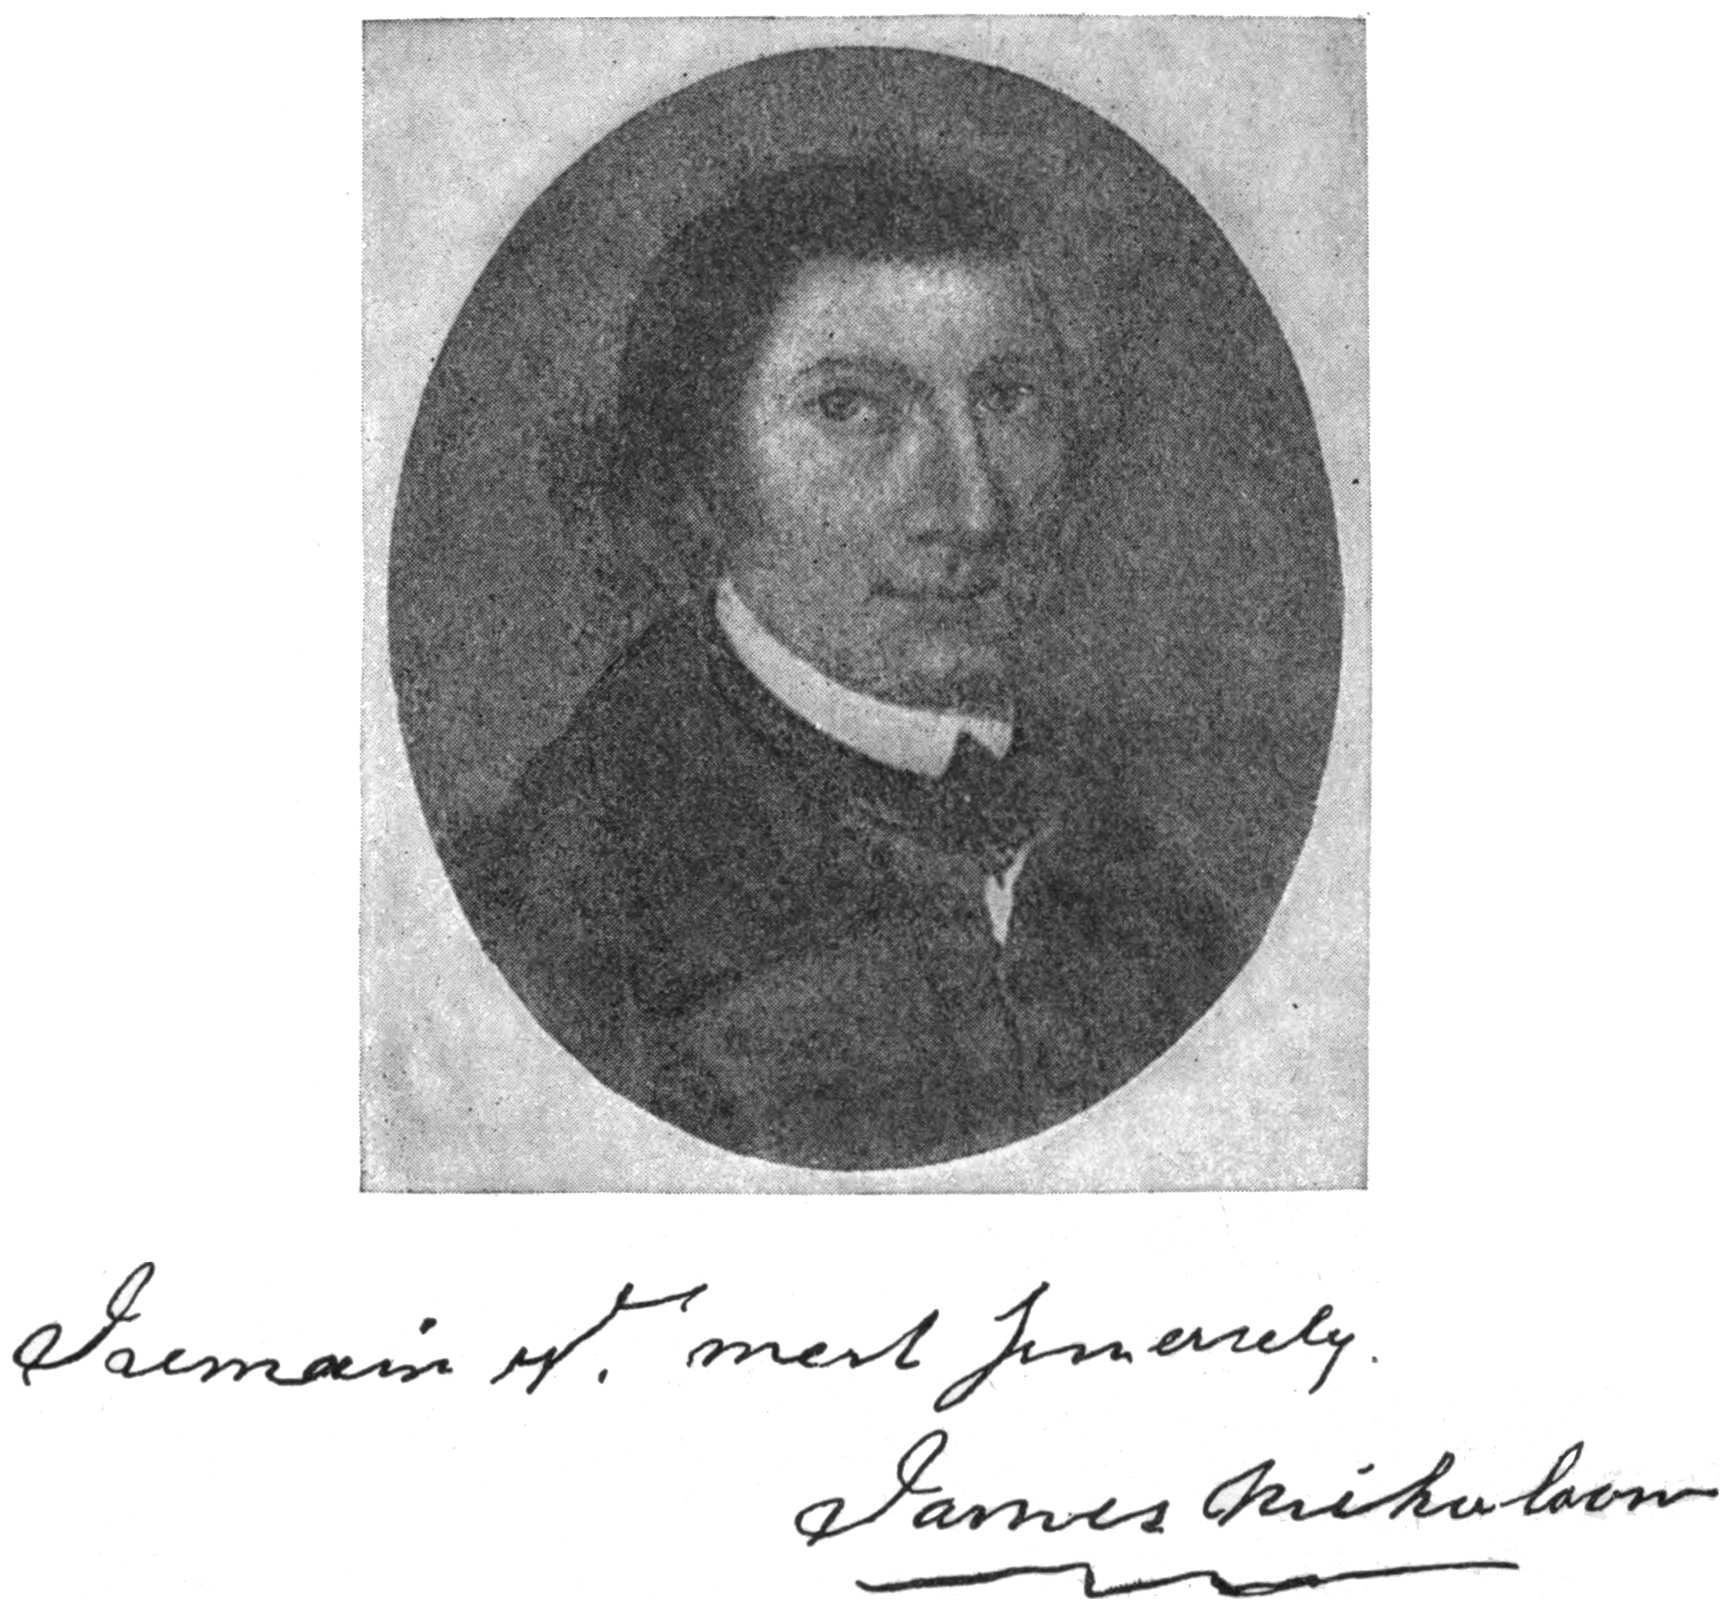 I remain yr. most sincerely.
James Nicholson